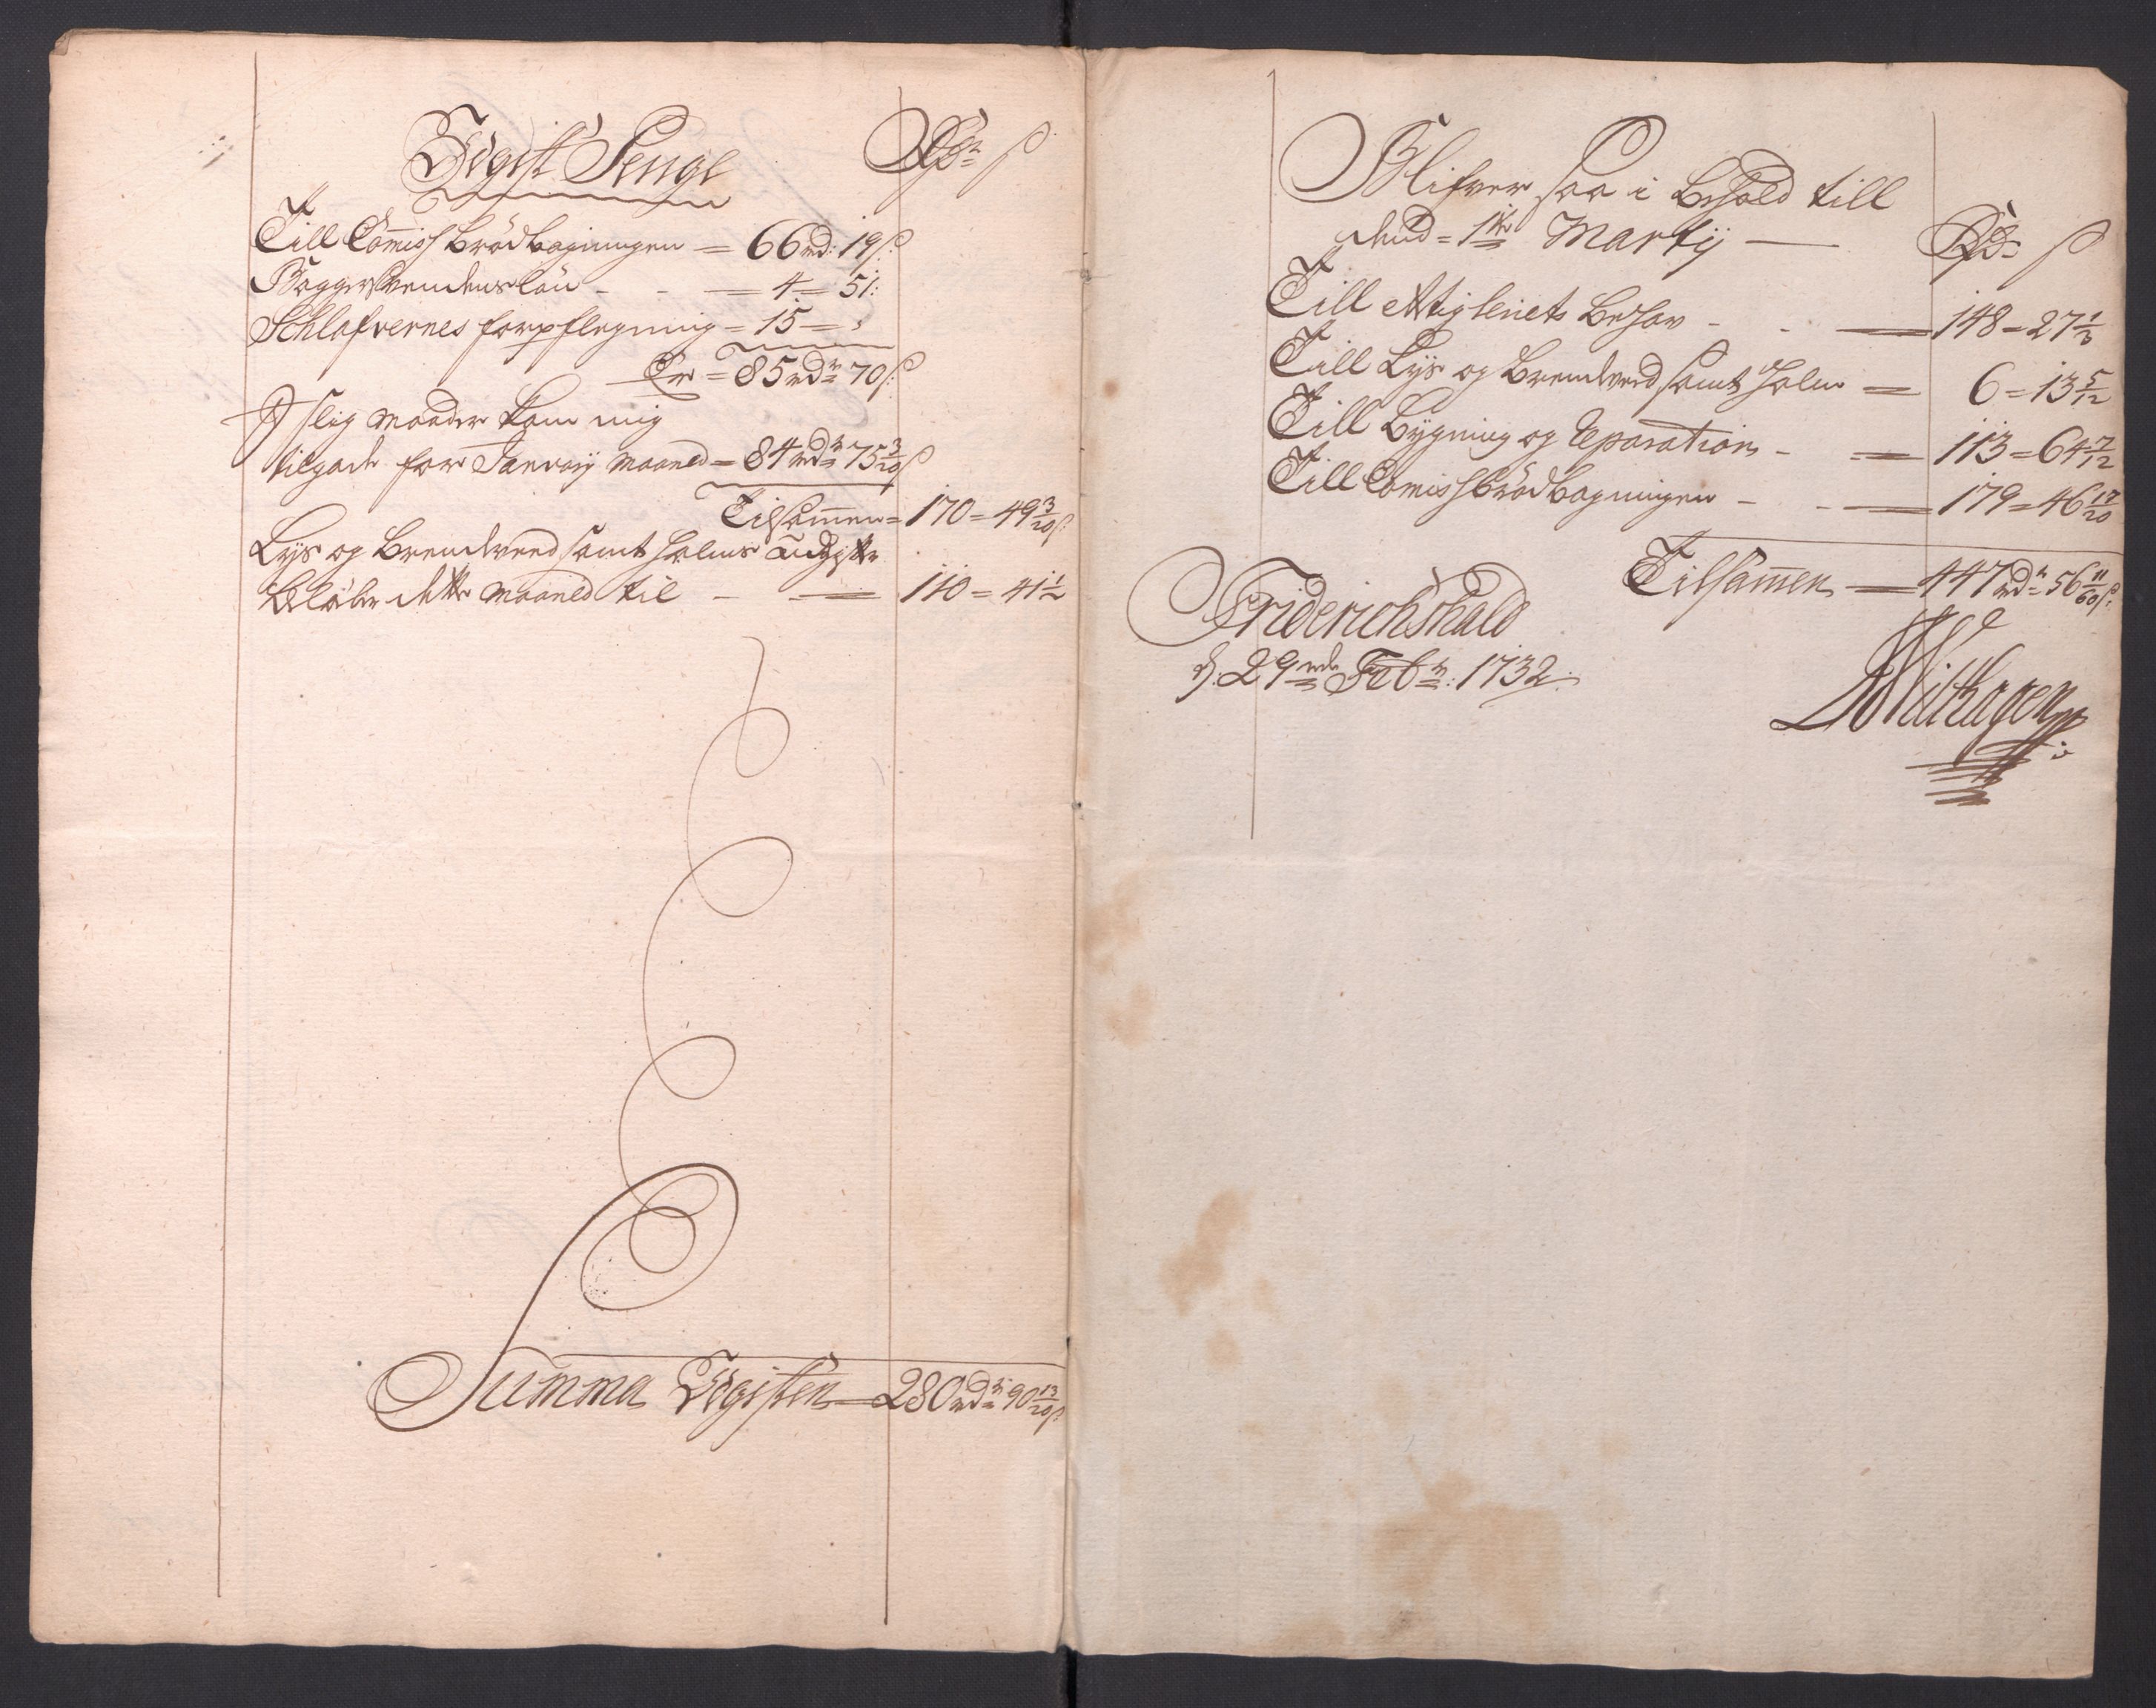 Udgift Penge Rdr ß
Till Com̄iss brödbagningen = 66 rd: 19 ß:
Baggersvendens lön - - = 4 = 51:
Schlafvernes forpflegning = 15 = ,
Er = 85 rdr 70 ß:
I slig maader kom mig
tilgode for Janvarij maaned = 84 rdr 75 3/20 ß
Tilsam̄en = 170 = 49 3/20 ß:
Lys og brendeved samt halms udgifter
beløber dette maaned til - = 110 = 41 1/2
Summa Udgiften = 280 rdr 90 13/20 ß
Blifver saa i behold till
dend = 1te Martij — Rdr ß
Till Behov - - = 148 = 27 1/3
Till Lys og brendeved samt halm = 6 = 13 5/12
Till bygning og Reparation - = 113 = 64 7/12
Till Comissbrödbagningen - - = 179 = 46 17/20
Tilsam̄en = 447 rdr 56 11/60 ß:
Friderichshald
d. 29nde Febr: 1732